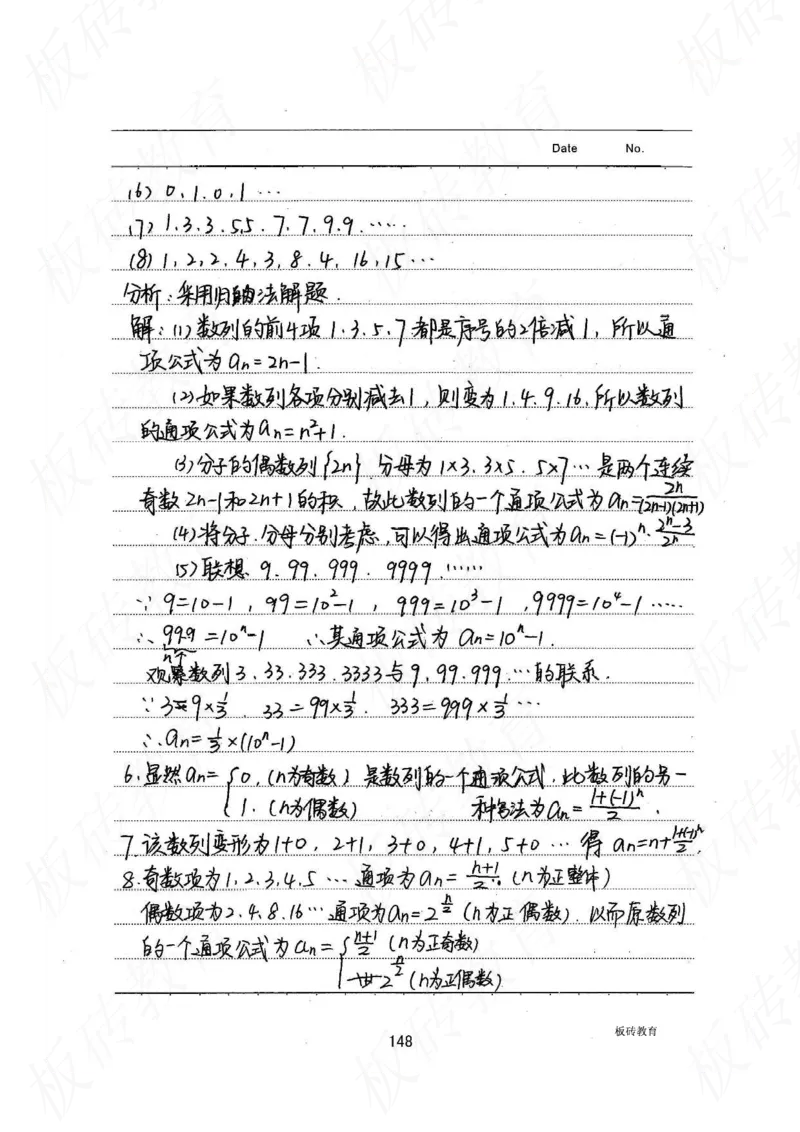 Date No.
(6) 0,1,0,1 …
(7) 1.3.3.5.5.7.7.9.9.……
(8) 1,2,2,4,3,8.4,16,15…
分析:采用归纳法解题.
解:(1)数列的前4项1.3.5.7都是序号的2倍减1,所以通
项公式为an=2n-1.
(2)如果数列各项分别减去1,则变为1.4.9.16.所以数列
的通项公式为an=n²+1.
(3)分子的偶数列{2n} 分母为1×3.3×5.5×7…是两个连续
奇数2n-1和2n+1的积,故此数列的一个通项公式为an=2n/(2n-1)(2n+1)
(4)将分子.分母分别考虑,可以得出通项公式为an=(-1)ⁿ·(2ⁿ-3)/2ⁿ
(5)联想.9.99.999.9999.……
∵9=10-1,99=10²-1,999=10³-1,9999=10⁴-1……
∴999=10ⁿ-1 ∴其通项公式为an=10ⁿ-1.
n个
观察数列3.33.333.3333与9.99.999.…的联系.
∵3=9×1/3.33=99×1/3.333=999×1/3…
∴an=1/3×(10ⁿ-1)
6.显然an={0.(n为奇数)是数列的一个通项公式.此数列的另一
1.(n为偶数) 种写法为an=(1+(-1)ⁿ)/2.
7.该数列变形为1+0,2+1,3+0,4+1,5+0…得an=n+(1+(-1)ⁿ)/2.
8.奇数项为1,2,3,4,5…通项为an=(n+1)/2;(n为正整体)
偶数项为2.4.8.16…通项为an=2^(n/2)(n为正偶数).以而原数列
的一个通项公式为an={(n+1)/2(n为正奇数)
2^(n/2)(n为正偶数)
板砖教育
148